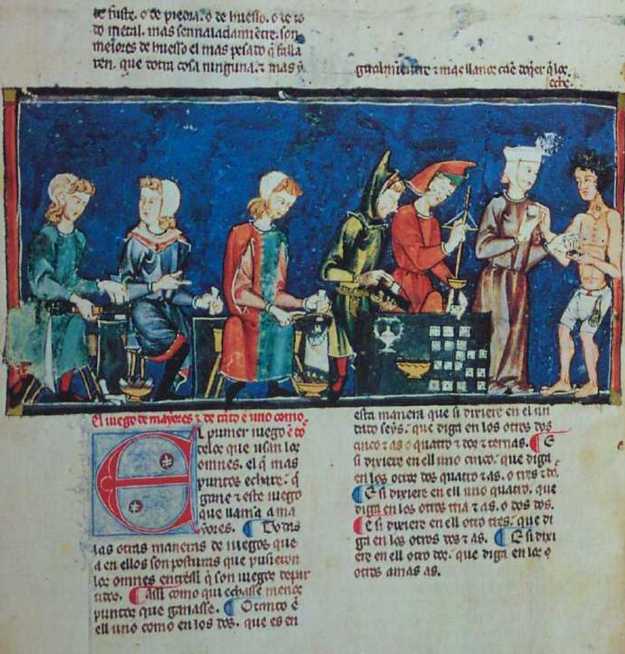 de fuste. o de piedra. o de huesso. o de to
do metal. mas sennaladamientre. son
meiores de huesso el mas pesado q̃ falla
ren. que dotra cosa ninguna. & mas y
gualmientre & mas llanos caẽ doq̃er q̃ los
eche.
El iuego de mayores & de tãto ẽ uno como
El primer iuego ẽ
telos que usan los
omnes. el q̃ mas
puntos echare. q̃
gane & este iuego
que llamã a ma
yores. Todas
las otras maneras de iuegos que
a en ellos son posturas que pusieron
los omnes entressi q̃ son iuegos depar
tidos. Assi como qui echasse menos
puntos que ganasse. O tanto ẽ
ell uno como en los dos. que es en
esta manera que si dixiere en el un
dado seys. que diga en los otros dos
cinco & as o quatro & dos & ternas. E
si dixiere en ell uno cinco. que diga
en los otros dos quatro & as. o tres & dos.
E si dixiere en ell uno quatro. que
diga en los otros tria & as. o dos dos.
E si dixiere en ell otro tres. que di
ga en los otros dos & as. E si dixi
ere en ell otro dos. que diga en los
otros amas as.